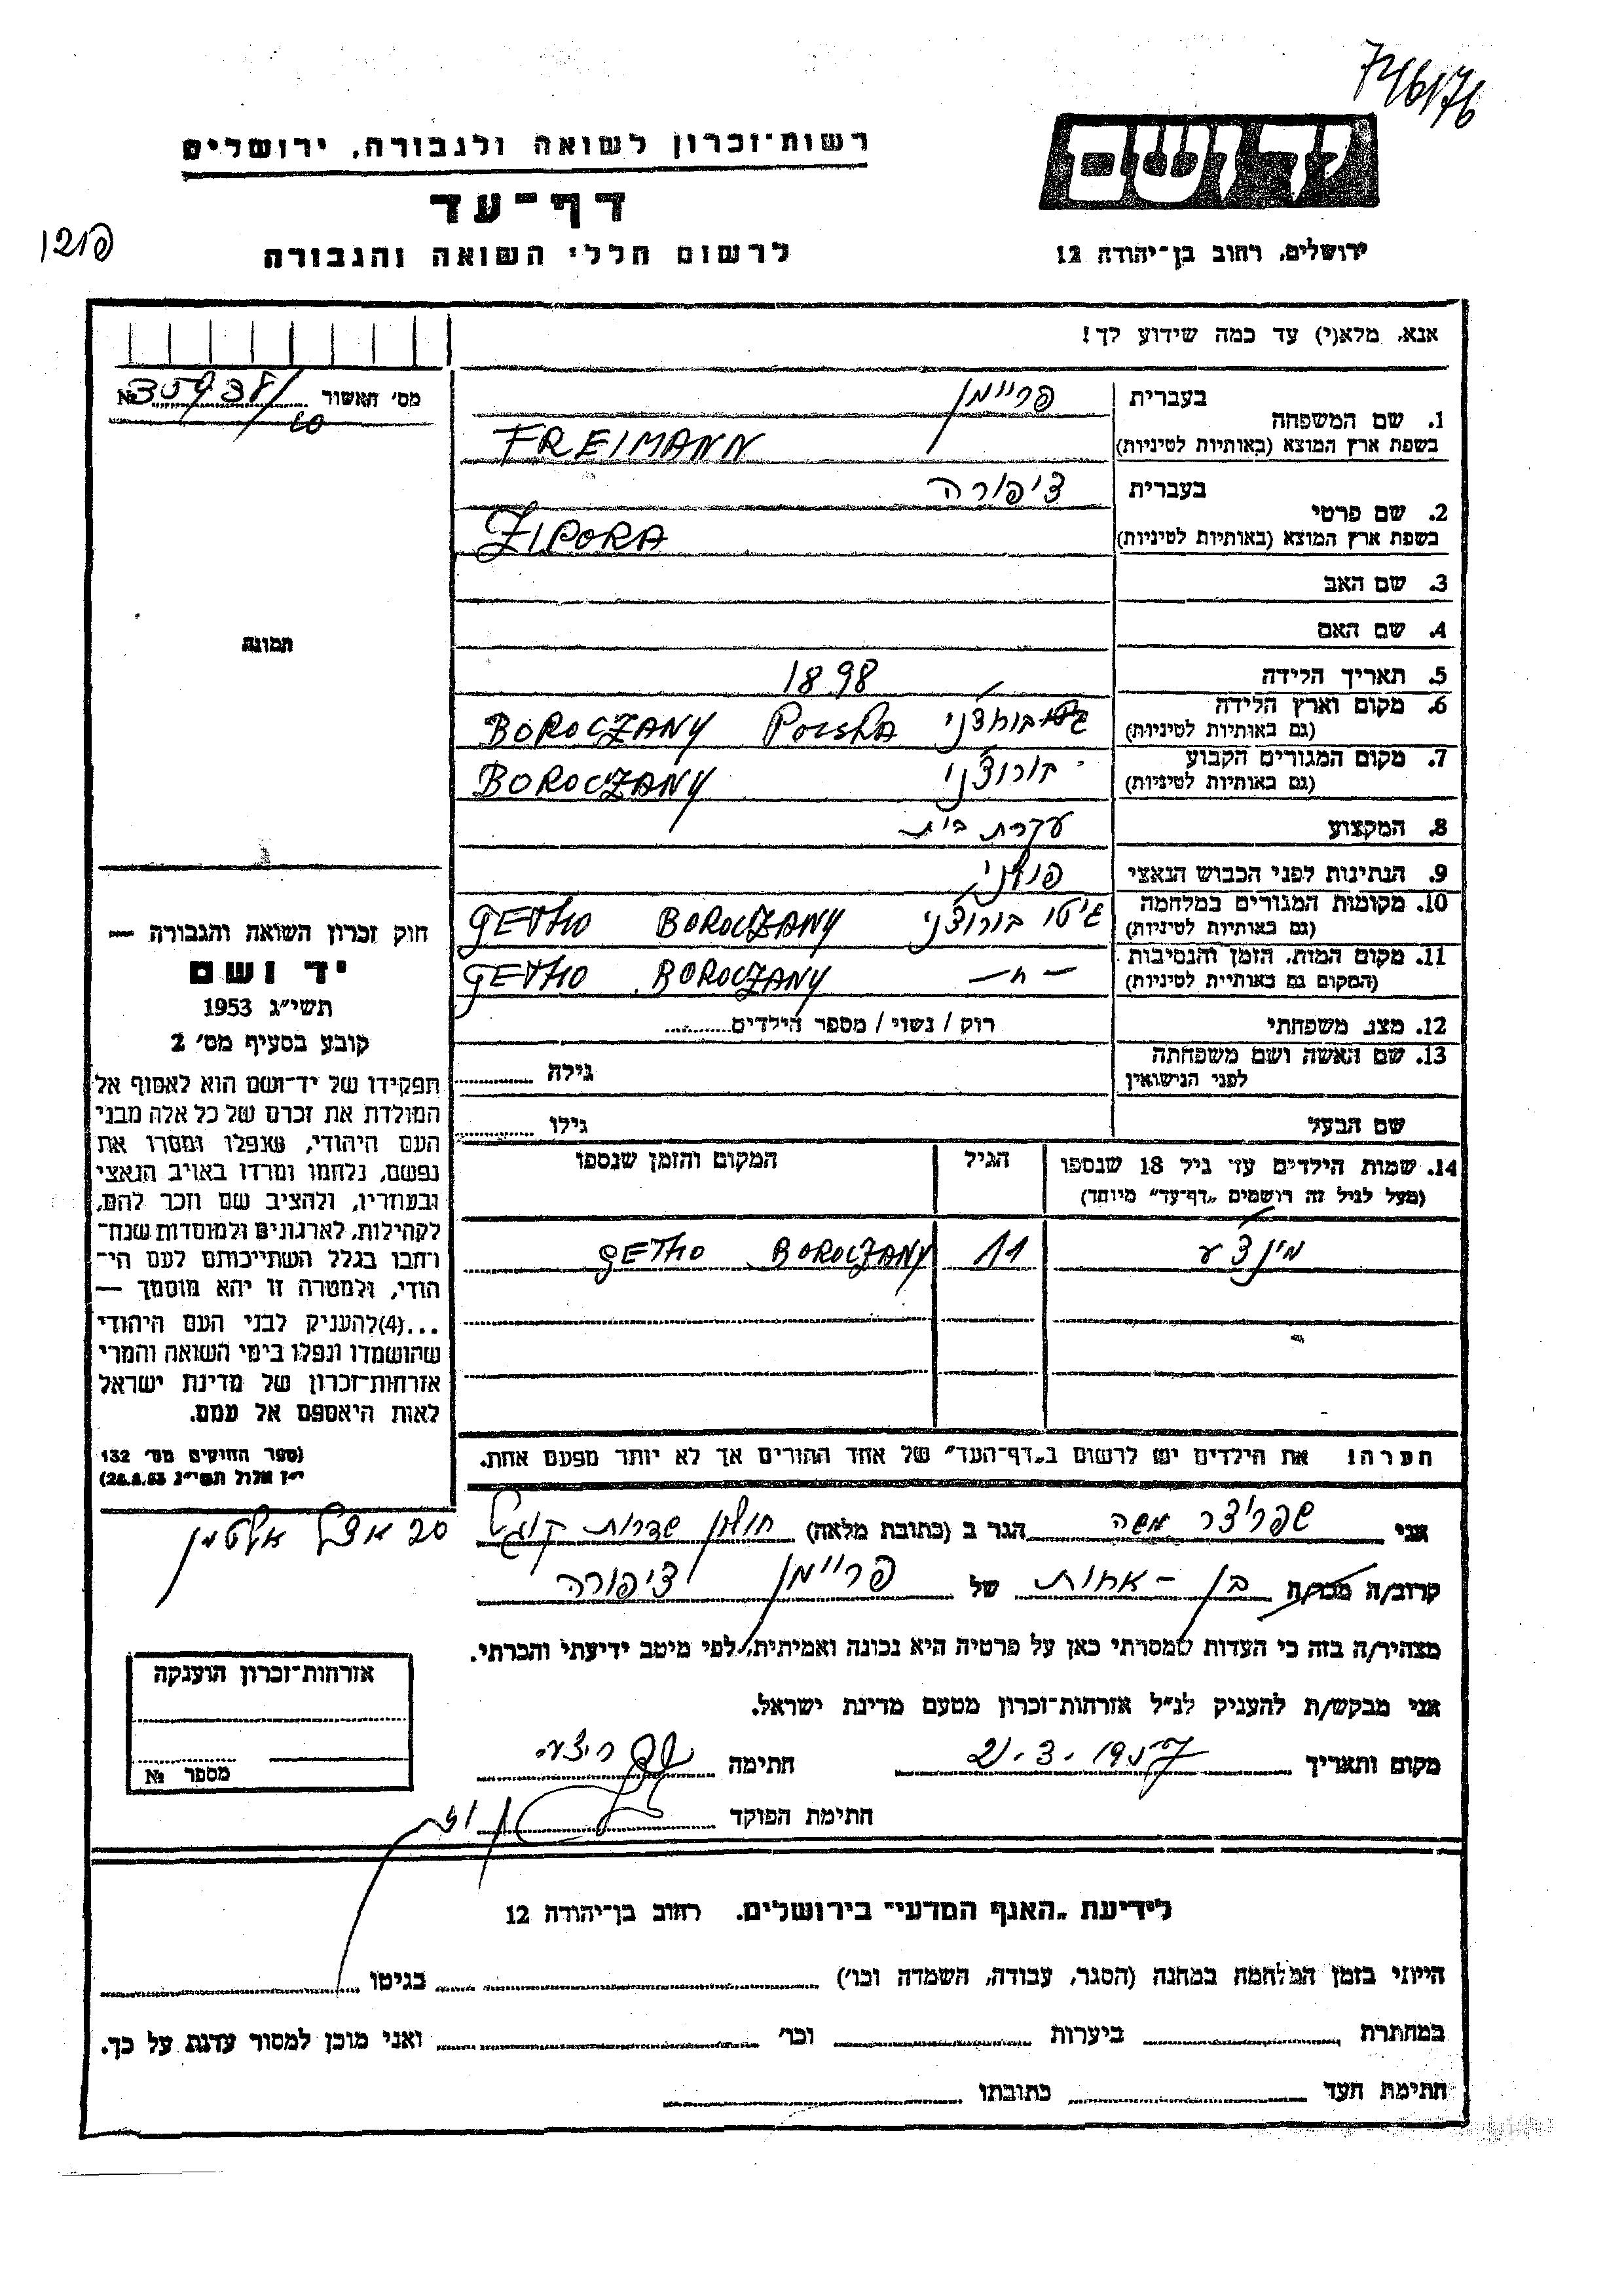 746176
רשות־זכרון לשואה ולגבורה, ירושלים
יד ושם
דף־עד
לרשום חללי השואה והגבורה
ירושלים, רחוב בן־יהודה 12
אנא, מלא(י) עד כמה שידוע לך!
מס׳ האשור № 35938/
60
1. שם המשפחה
בעברית פריימן
בשפת ארץ המוצא (באותיות לטיניות) FREIMANN
2. שם פרטי
בעברית ציפורה
בשפת ארץ המוצא (באותיות לטיניות) ZIPORA
3. שם האב
4. שם האם
תמונה
5. תאריך הלידה 1898
6. מקום וארץ הלידה
(גם באותיות לטיניות) BOROCZANY Polska
7. מקום המגורים הקבוע
(גם באותיות לטיניות) בורוצ'ני BOROCZANY
8. המקצוע עקרת בית
9. הנתינות לפני הכבוש הנאצי פולני
10. מקומות המגורים במלחמה
(גם באותיות לטיניות) גיטו בורוצ'ני GETHO BOROCZANY
11. מקום המות, הזמן והנסיבות
(המקום גם באותיית לטיניות) — " — GETHO BOROCZANY
12. מצב משפחתי רוק / נשוי / מספר הילדים
13. שם האשה ושם משפחתה
לפני הנישואין גילה
שם הבעל גילו
14. שמות הילדים עד גיל 18 שנספו הגיל המקום והזמן שנספו
(מעל לגיל זה רושמים „דף־עד״ מיוחד)
11 GETHO BOROCZANY
הערה! את הילדים יש לרשום ב„דף־העד״ של אחד ההורים אך לא יותר מפעם אחת.
חוק זכרון השואה והגבורה —
יד ושם
תשי״ג 1953
קובע בסעיף מס׳ 2
תפקידו של יד־ושם הוא לאסוף אל
המולדת את זכרם של כל אלה מבני
העם היהודי, שנפלו ומסרו את
נפשם, נלחמו ומרדו באויב הנאצי
ובעוזריו, ולהציב שם וזכר להם,
לקהילות, לארגונים ולמוסדות שנח־
רחבו בגלל השתייכותם לעם הי־
הודי, ולמטרה זו יהא מוסמך —
...(4)להעניק לבני העם היהודי
שהושמדו ונפלו בימי השואה והמרי
אזרחות־זכרון של מדינת ישראל
לאות היאספם אל עמם.
(ספר החוקים מס׳ 132
י״ז אלול תשי״ג 28.8.53)
אני שפריצר משה הגר ב (כתובת מלאה) חולון שדרות קוגל 20 אצל אלטמן
קרוב/ה מכר/ה בן - אחות של פריימן ציפורה
מצהיר/ה בזה כי העדות שמסרתי כאן על פרטיה היא נכונה ואמיתית, לפי מיטב ידיעתי והכרתי.
אני מבקש/ת להעניק לנ״ל אזרחות־זכרון מטעם מדינת ישראל.
מקום ותאריך 21.3.1957 חתימה
חתימת הפוקד
אזרחות־זכרון הוענקה
מספר №
לידיעת „האגף המדעי״ בירושלים. רחוב בן־יהודה 12
הייתי בזמן המלחמה במחנה (הסגר, עבודה, השמדה וכו׳) בגיטו
במחתרת ביערות וכו׳ ואני מוכן למסור עדות על כך.
חתימת העד כתובתו